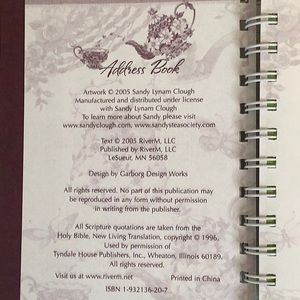 Address Book
Artwork © 2005 Sandy Lynam Clough
Manufactured and distributed under license
with Sandy Lynam Clough
To learn more about Sandy please visit
www.sandyclough.com, www.sandysteasociety.com
Text © 2005 RiverM, LLC
Published by RiverM, LLC
LeSueur, MN 56058
Design by Garborg Design Works
All rights reserved. No part of this publication may
be reproduced in any form without permission
in writing from the publisher.
All Scripture quotations are taken from the
Holy Bible, New Living Translation, copyright © 1996.
Used by permission of
Tyndale House Publishers, Inc., Wheaton, Illinois 60189.
All rights reserved.
Visit us at www.riverm.net Printed in China
ISBN 1-932136-20-7